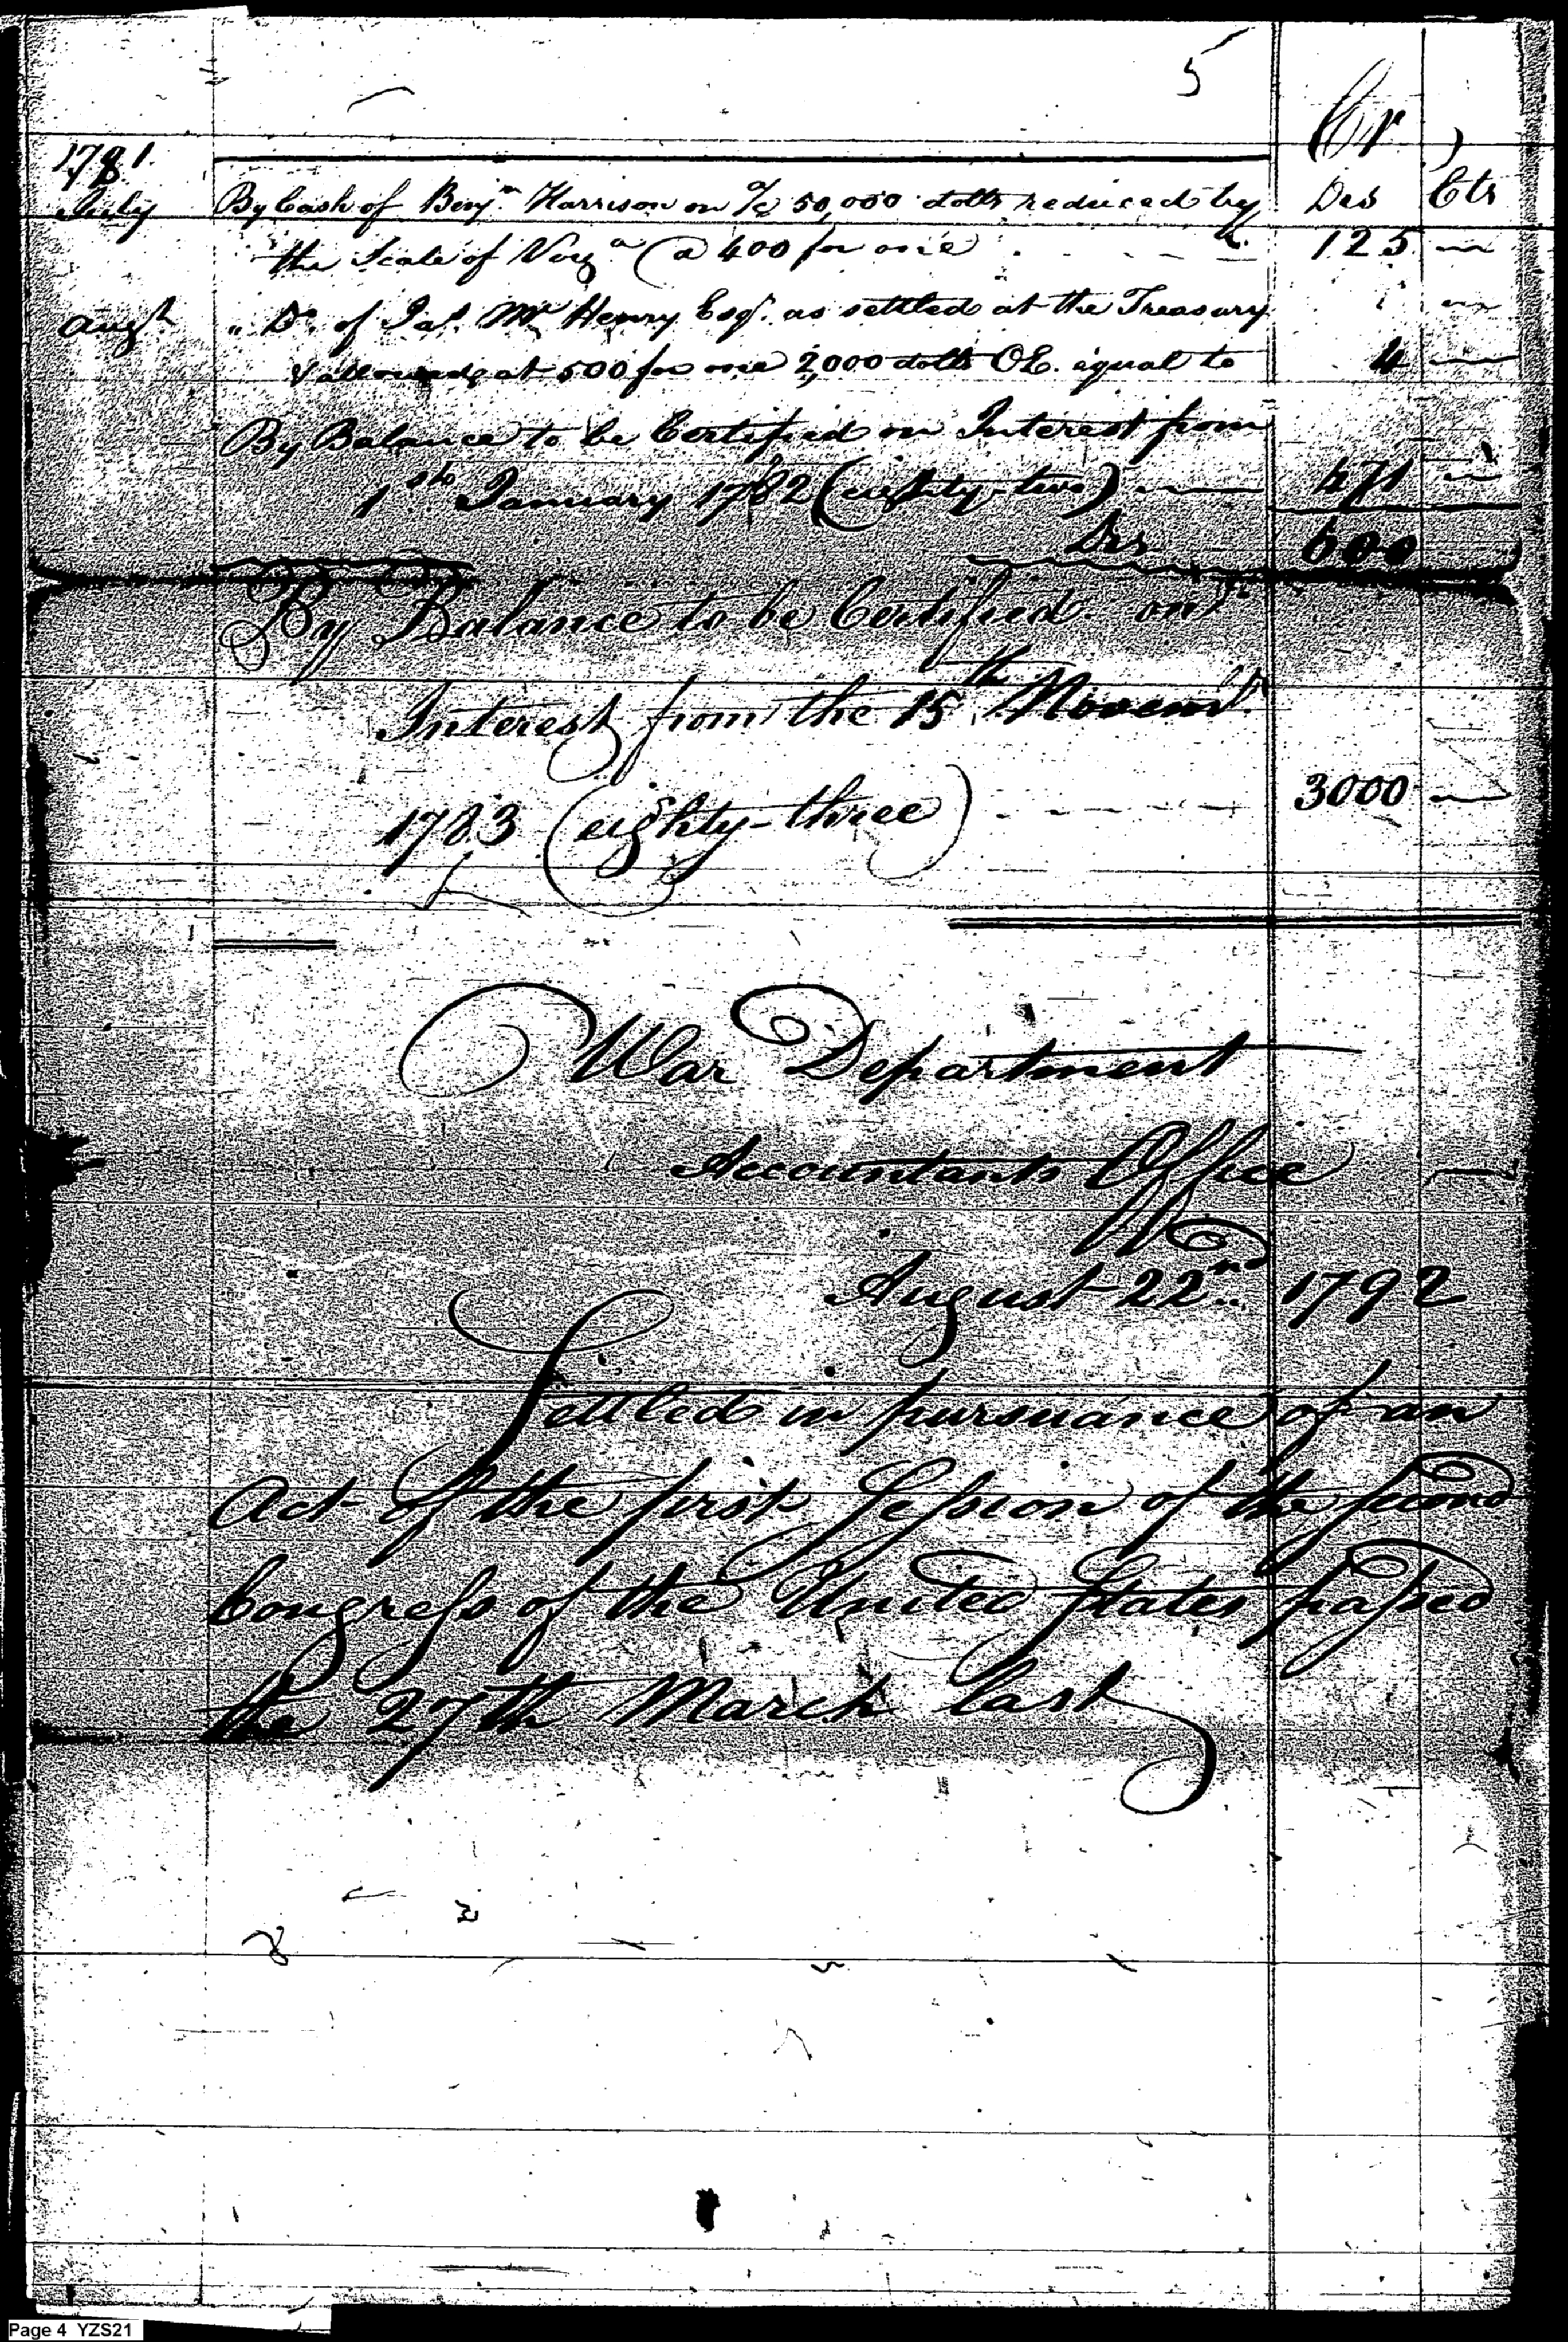 5
Cr
1781
July By Cash of Benjn. Harrison on a/c 50,000 dolls reduced by Drs Cts
the Scale of Virga @ 400 for one 125 —
Augst " Do. of Jas. Mc Henry Esqr. as settled at the Treasury
& allowed at 500 for one 2,000 dolls OE. equal to 4 —
By Balance to be Certified on Interest from
1st January 1782 (eighty-two) — 471 —
Drs 600
By Balance to be Certified on
Interest from the 15th Novemr.
1783 (eighty-three) 3000 —
War Department
Accountants Office
August 22nd 1792
Settled in pursuance of an
Act of the first Session of the second
Congress of the United States passed
the 27th March last
Page 4 YZS21